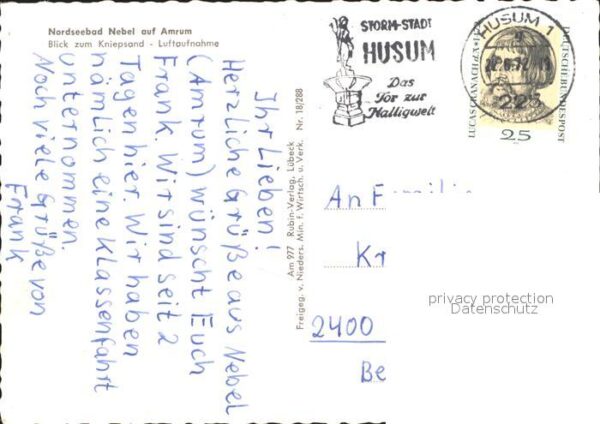 Nordseebad Nebel auf Amrum
Blick zum Kniepsand - Luftaufnahme
Ihr Lieben!
Herzliche Grüße aus Nebel
(Amrum) wünscht Euch
Frank. Wir sind seit 2
Tagen hier. Wir haben
nämlich eine Klassenfahrt
unternommen.
Noch viele Grüße von
Frank
Am 977 Rubin-Verlag, Lübeck
Freigeg. v. Nieders. Min. f. Wirtsch. u. Verk. Nr. 18/288
STORM-STADT
HUSUM
Das
Tor zur
Halligwelt
HUSUM 1
225
LUCAS CRANACH D.Ä.
DEUTSCHE BUNDESPOST
25
An F
Kr
2400
Be
privacy protection
Datenschutz